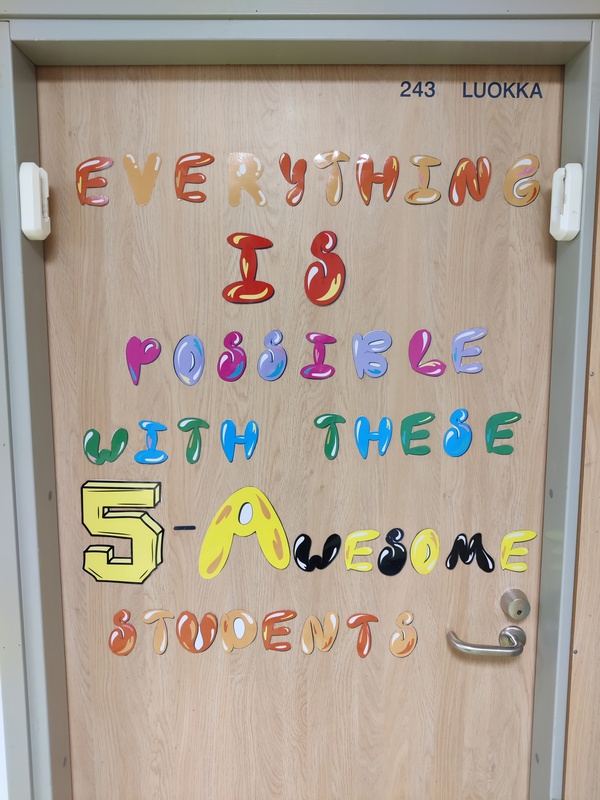 243 LUOKKA
EVERYTHING
IS
POSSIBLE
WITH THESE
5-AWESOME
STUDENTS